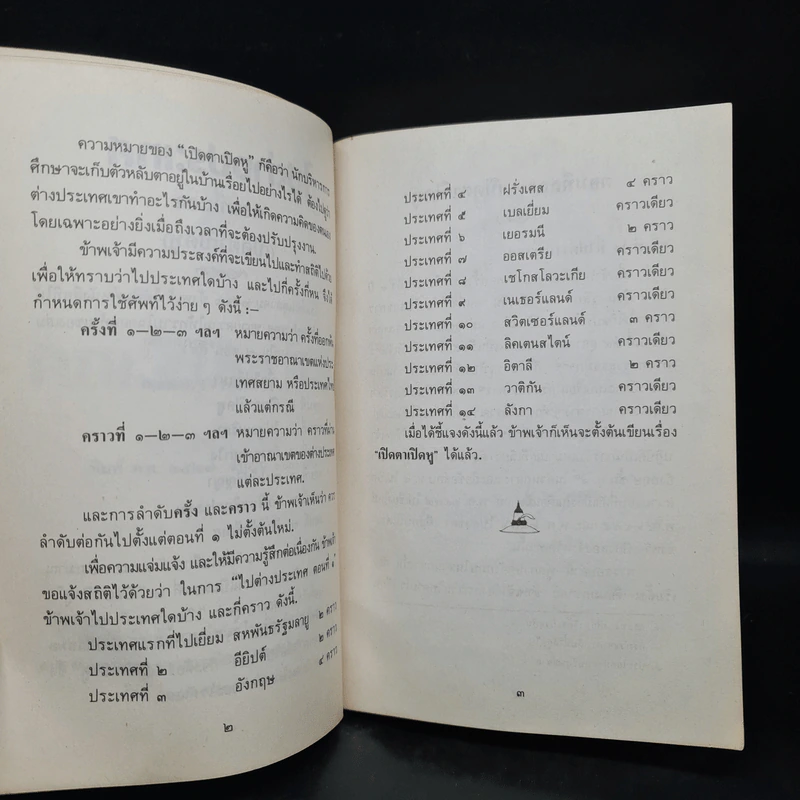 ความหมายของ “เปิดตาเปิดหู” ก็คือว่า นักบริหารการ
ศึกษาจะเก็บตัวหลับตาอยู่ในบ้านเรื่อยไปอย่างไรได้ ต้องไปดูว่า
ต่างประเทศเขาทำอะไรกันบ้าง เพื่อให้เกิดความคิดของตนเอง
โดยเฉพาะอย่างยิ่งเมื่อถึงเวลาที่จะต้องปรับปรุงงาน.
ข้าพเจ้ามีความประสงค์ที่จะเขียนไปและทำสถิติไปด้วย
เพื่อให้ทราบว่าไปประเทศใดบ้าง และไปกี่ครั้งกี่หน จึงได้
กำหนดการใช้ศัพท์ไว้ง่าย ๆ ดังนี้ :–
ครั้งที่ ๑–๒–๓ ฯลฯ หมายความว่า ครั้งที่ออกพ้น
พระราชอาณาเขตแห่งประ
เทศสยาม หรือประเทศไทย
แล้วแต่กรณี
คราวที่ ๑–๒–๓ ฯลฯ หมายความว่า คราวที่ผ่าน
เข้าอาณาเขตของต่างประเทศ
แต่ละประเทศ.
และการลำดับครั้ง และคราว นี้ ข้าพเจ้าเห็นว่า ควร
ลำดับต่อกันไปตั้งแต่ตอนที่ ๑ ไม่ตั้งต้นใหม่.
เพื่อความแจ่มแจ้ง และให้มีความรู้สึกต่อเนื่องกัน ข้าพเจ้า
ขอแจ้งสถิติไว้ด้วยว่า ในการ “ไปต่างประเทศ ตอนที่ ๑”
ข้าพเจ้าไปประเทศใดบ้าง และกี่คราว ดังนี้.
ประเทศแรกที่ไปเยี่ยม สหพันธรัฐมลายู ๒ คราว
ประเทศที่ ๒ อียิปต์ ๒ คราว
ประเทศที่ ๓ อังกฤษ ๔ คราว
๒
ประเทศที่ ๔ ฝรั่งเศส ๔ คราว
ประเทศที่ ๕ เบลเยี่ยม คราวเดียว
ประเทศที่ ๖ เยอรมนี ๒ คราว
ประเทศที่ ๗ ออสเตรีย คราวเดียว
ประเทศที่ ๘ เชโกสโลวะเกีย คราวเดียว
ประเทศที่ ๙ เนเธอร์แลนด์ คราวเดียว
ประเทศที่ ๑๐ สวิตเซอร์แลนด์ ๓ คราว
ประเทศที่ ๑๑ ลิคเตนสไตน์ คราวเดียว
ประเทศที่ ๑๒ อิตาลี ๒ คราว
ประเทศที่ ๑๓ วาติกัน คราวเดียว
ประเทศที่ ๑๔ ลังกา คราวเดียว
เมื่อได้ชี้แจงดังนี้แล้ว ข้าพเจ้าก็เห็นจะตั้งต้นเขียนเรื่อง
“เปิดตาเปิดหู” ได้แล้ว.
๓